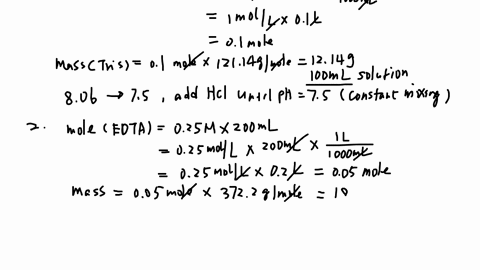 1000mL
= 1 mol/L x 0.1L
= 0.1 mole
Mass(Tris) = 0.1 mole x 121.14g/mole = 12.14g
100mL solution
8.06 → 7.5, add Hcl Until pH = 7.5 (constant mixing)
2. mole (EDTA) = 0.25M x 200mL
= 0.25 mol/L x 200mL x 1L/1000mL
= 0.25 mol/L x 0.2L = 0.05 mole
Mass = 0.05 mole x 372.2g/mole = 18